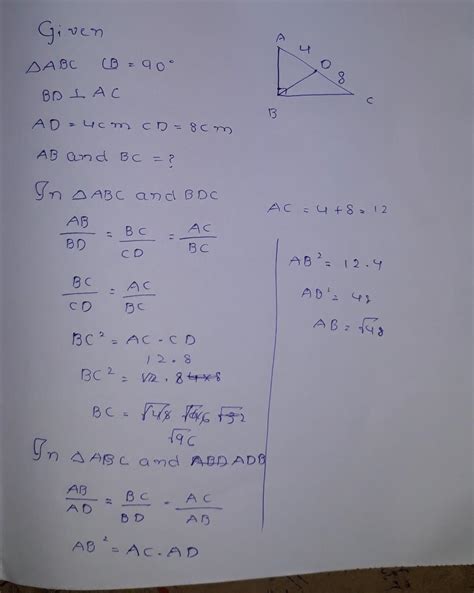 Given
△ABC ∠B = 90°
BD ⊥ AC
AD = 4cm CD = 8cm
AB and BC = ?
In △ABC and BDC
AB/BD = BC/CD = AC/BC
BC/CD = AC/BC
BC² = AC · CD
12 · 8
BC² = 12 · 8
BC =
√96
In △ABC and ADB
AB/AD = BC/BD = AC/AB
AB² = AC · AD
A
4
D
8
B
C
AC = 4 + 8 = 12
AB² = 12 · 4
AB² = 48
AB = √48